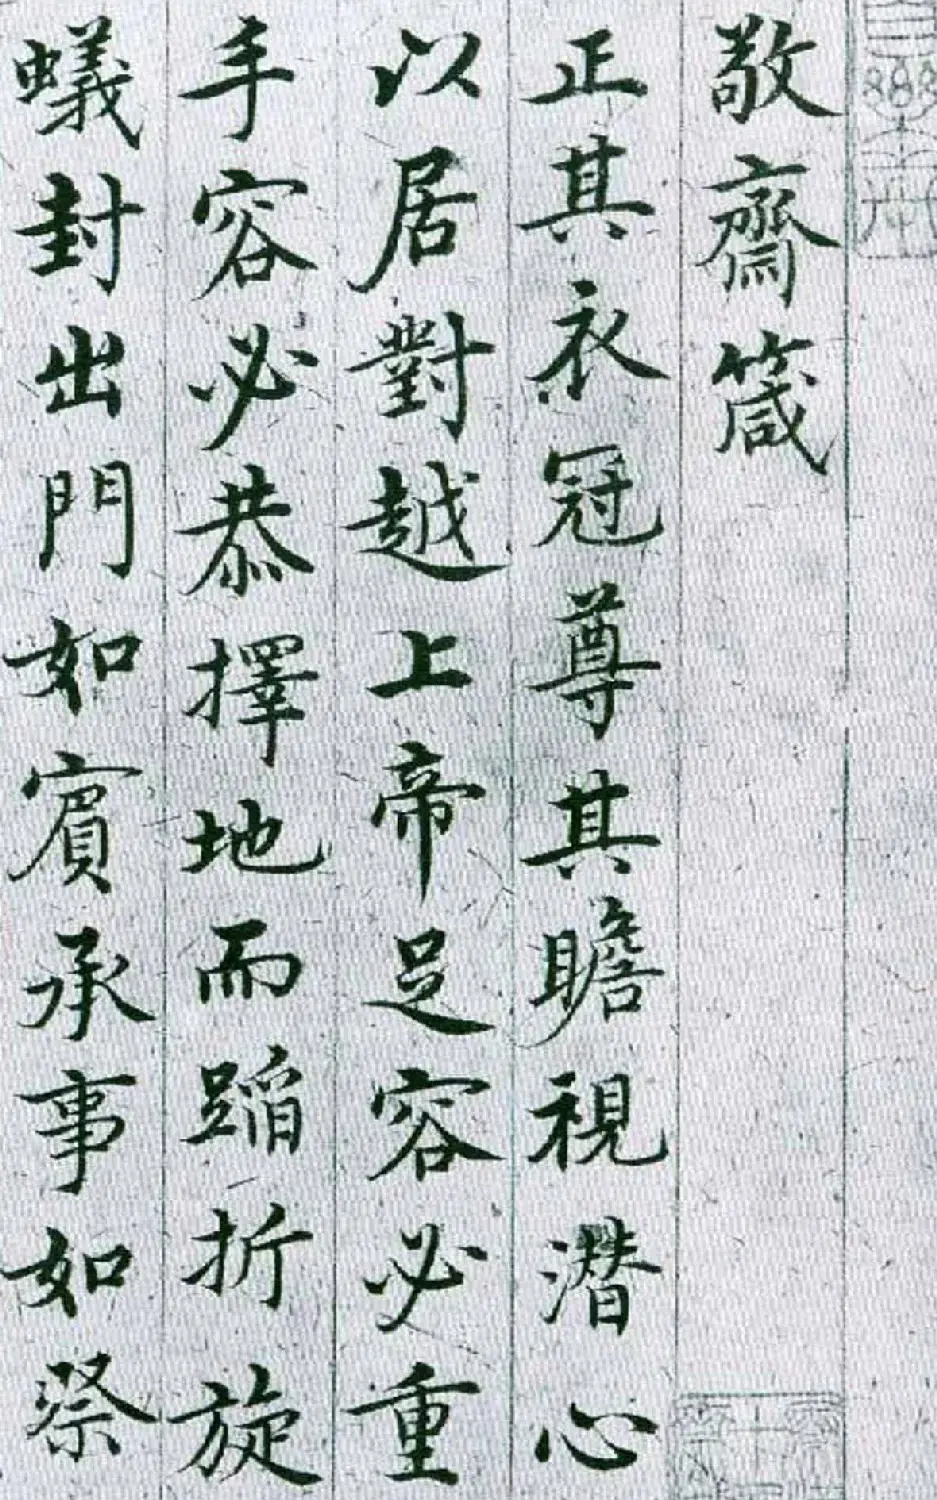 敬齋箴
正其衣冠尊其瞻視潛心
以居對越上帝足容必重
手容必恭擇地而蹈折旋
蟻封出門如賓承事如祭